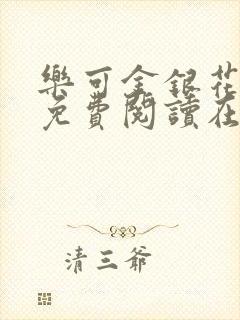 樂可金銀花
免費閱讀在
清三爺